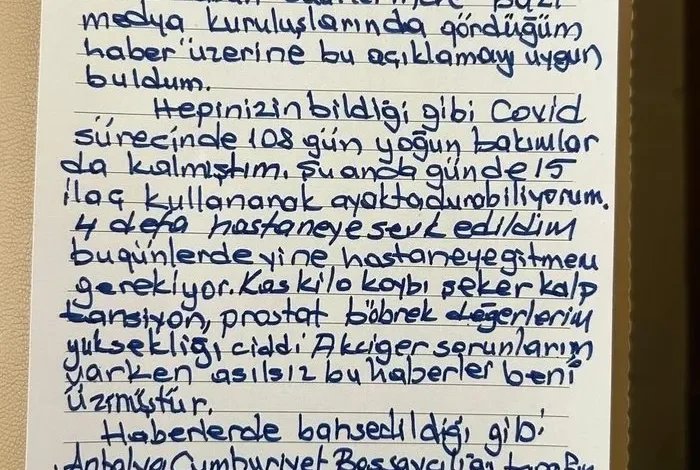 bazı
medya kuruluşlarında gördüğüm
haber üzerine bu açıklamayı uygun
buldum.
Hepinizin bildiği gibi Covid
sürecinde 108 gün yoğun bakımlar
da kalmıştım. şu anda günde 15
ilaç kullanarak ayakta durabiliyorum.
4 defa hastaneye sevk edildim
bugünlerde yine hastaneye gitmem
gerekiyor. Kas kilo kaybı şeker kalp
tansiyon, prostat böbrek değerlerim
yüksekliği ciddi Akciger sorunlarım
varken asılsız bu haberler beni
üzmüştür.
Haberlerde bahsedildiği gibi
Antalya Cumhuriyet Başsavcılığı